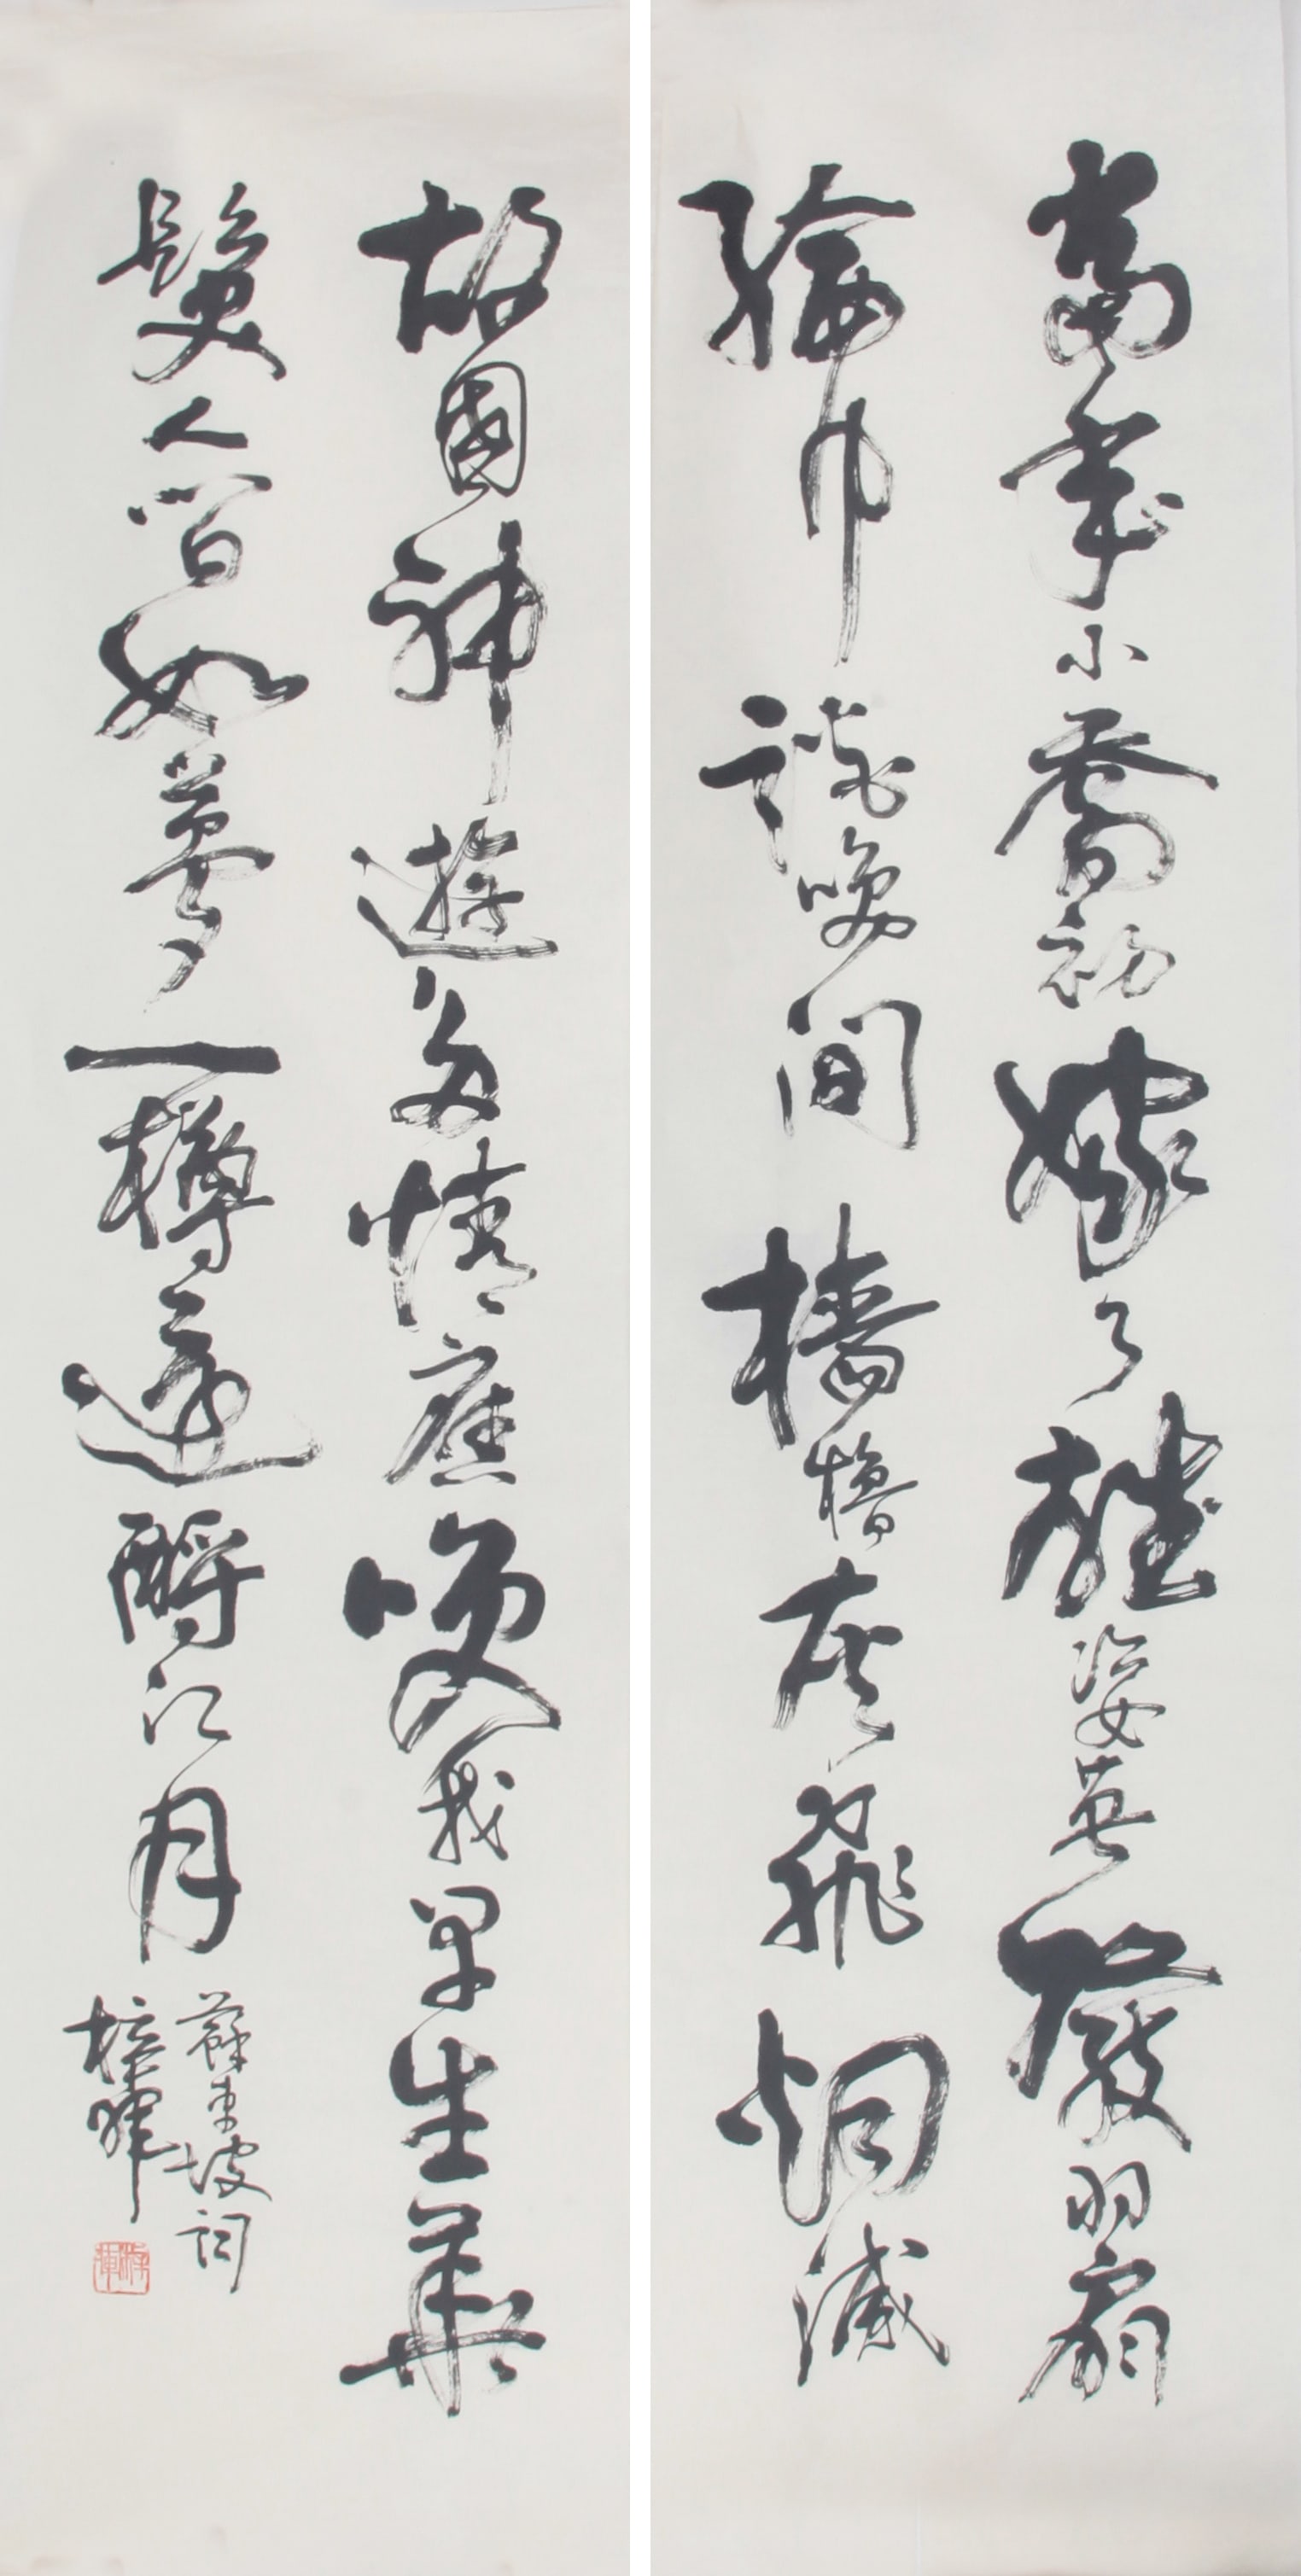 當年小喬初嫁了雄姿英發羽扇
綸巾談笑間檣櫓灰飛烟滅
故國神遊多情應笑我早生華
髮人間如夢一樽還酹江月
蘇東坡詞